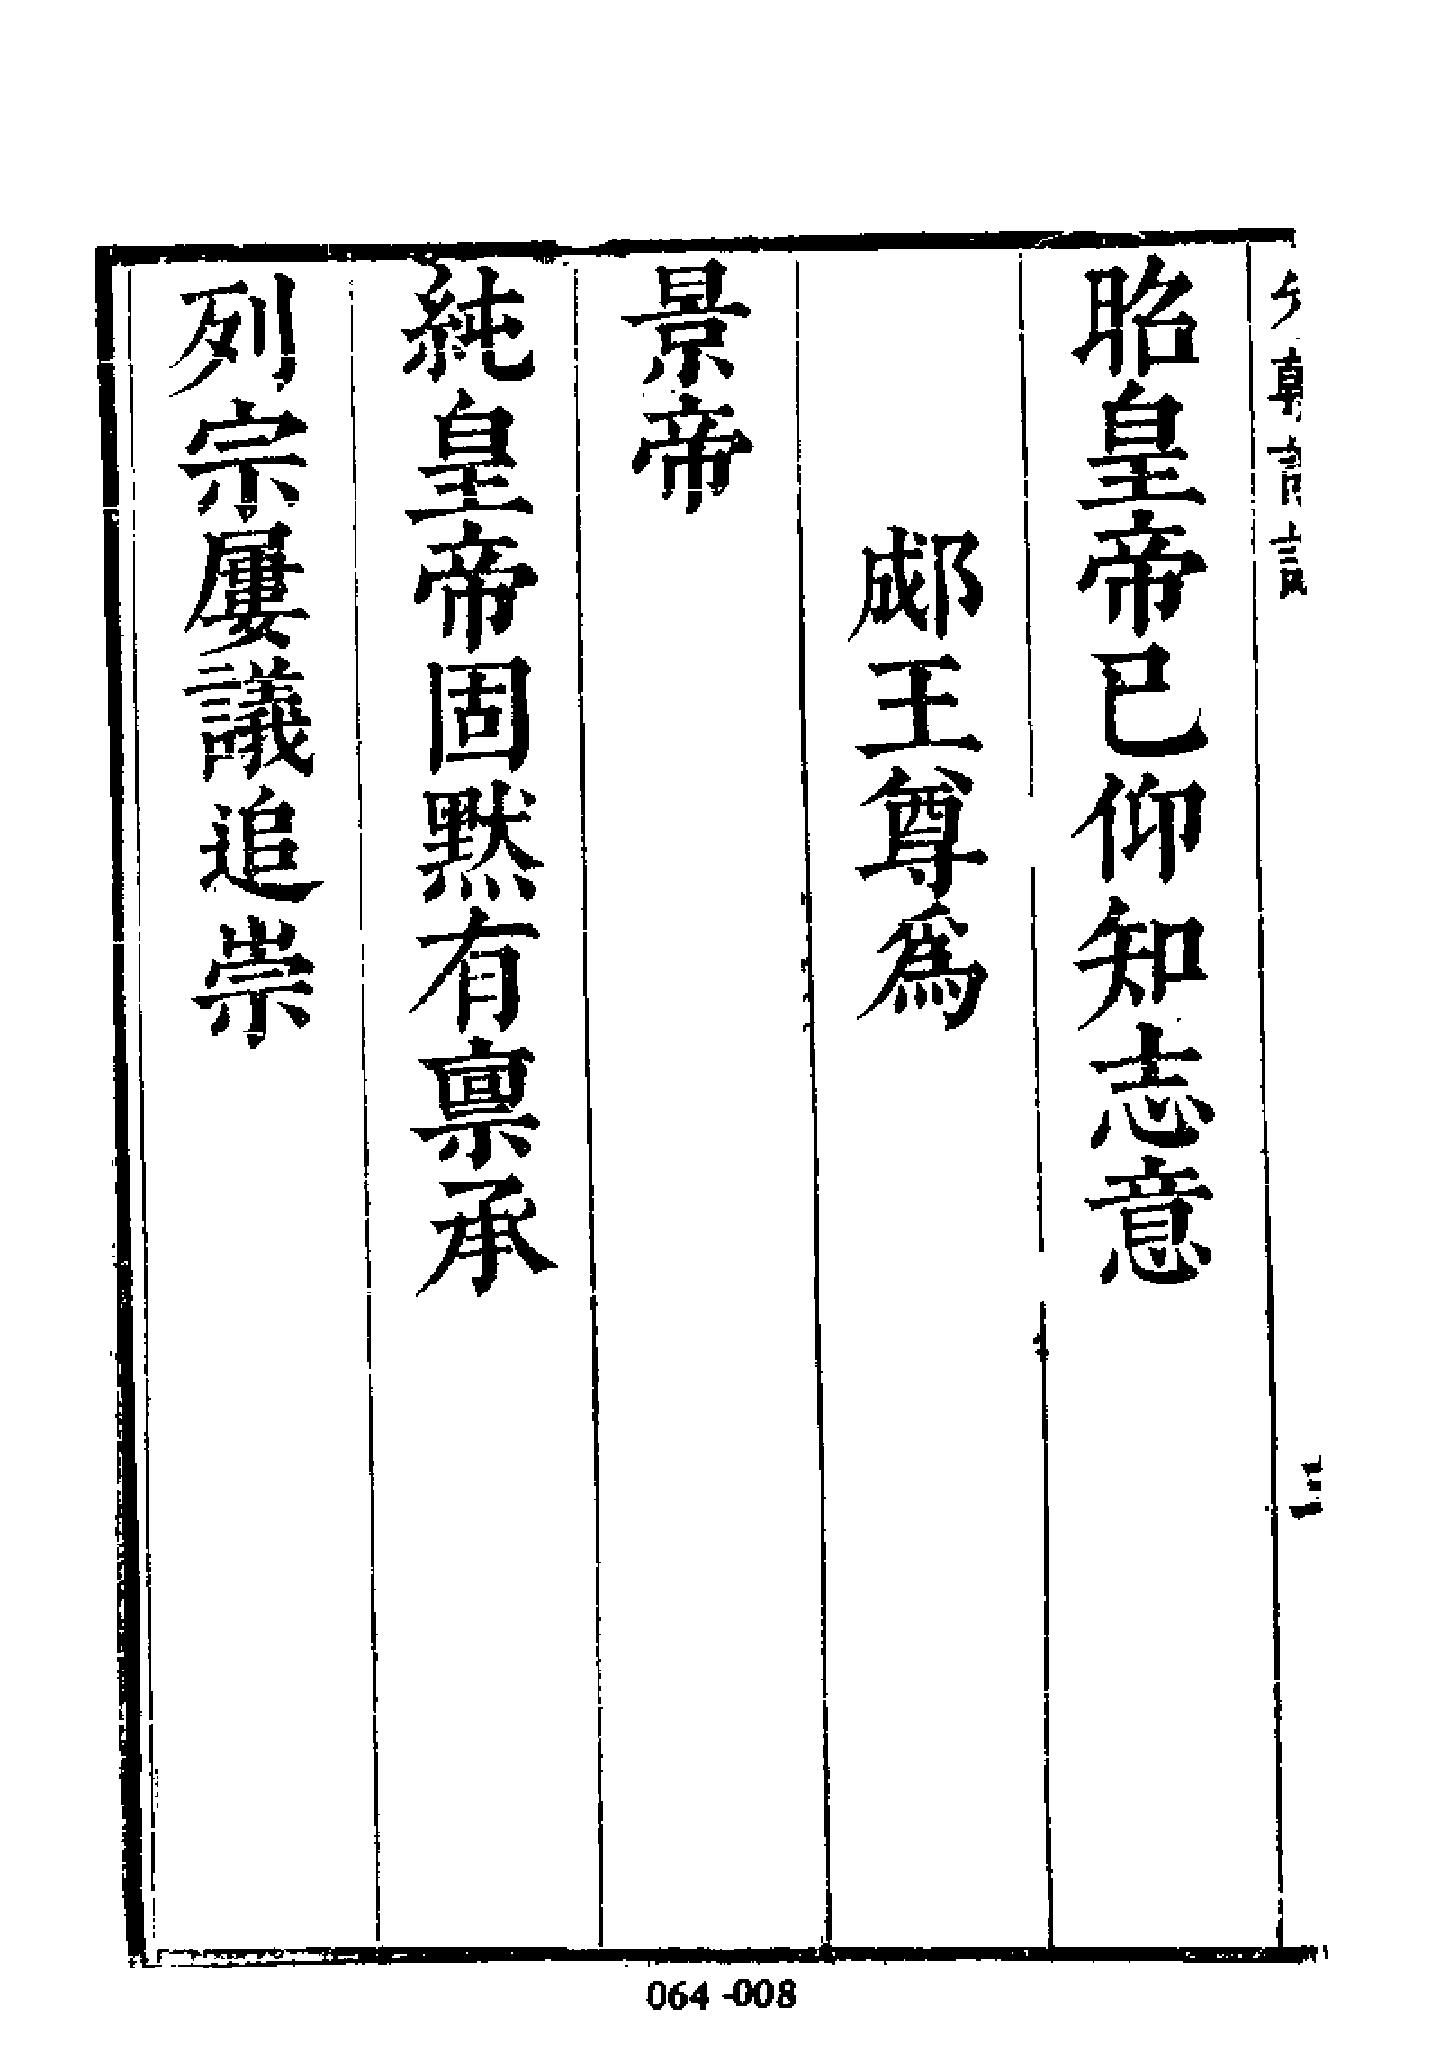 昭皇帝已仰知志意
郕王尊為
景帝
純皇帝固默有禀承
列宗屢議追崇
064-008